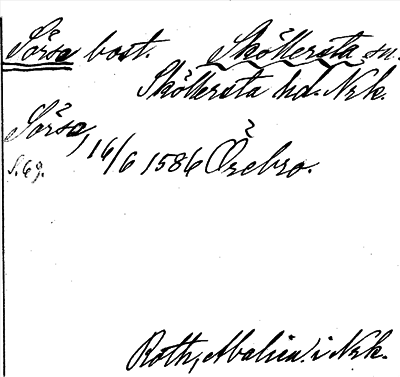 Sörsa bost. Sköllersta sn.
Sköllersta hd. Nrk.
Sörsa, 16/6 1586 Örebro.
S. 69.
Roth, Abalien. i Nrk.